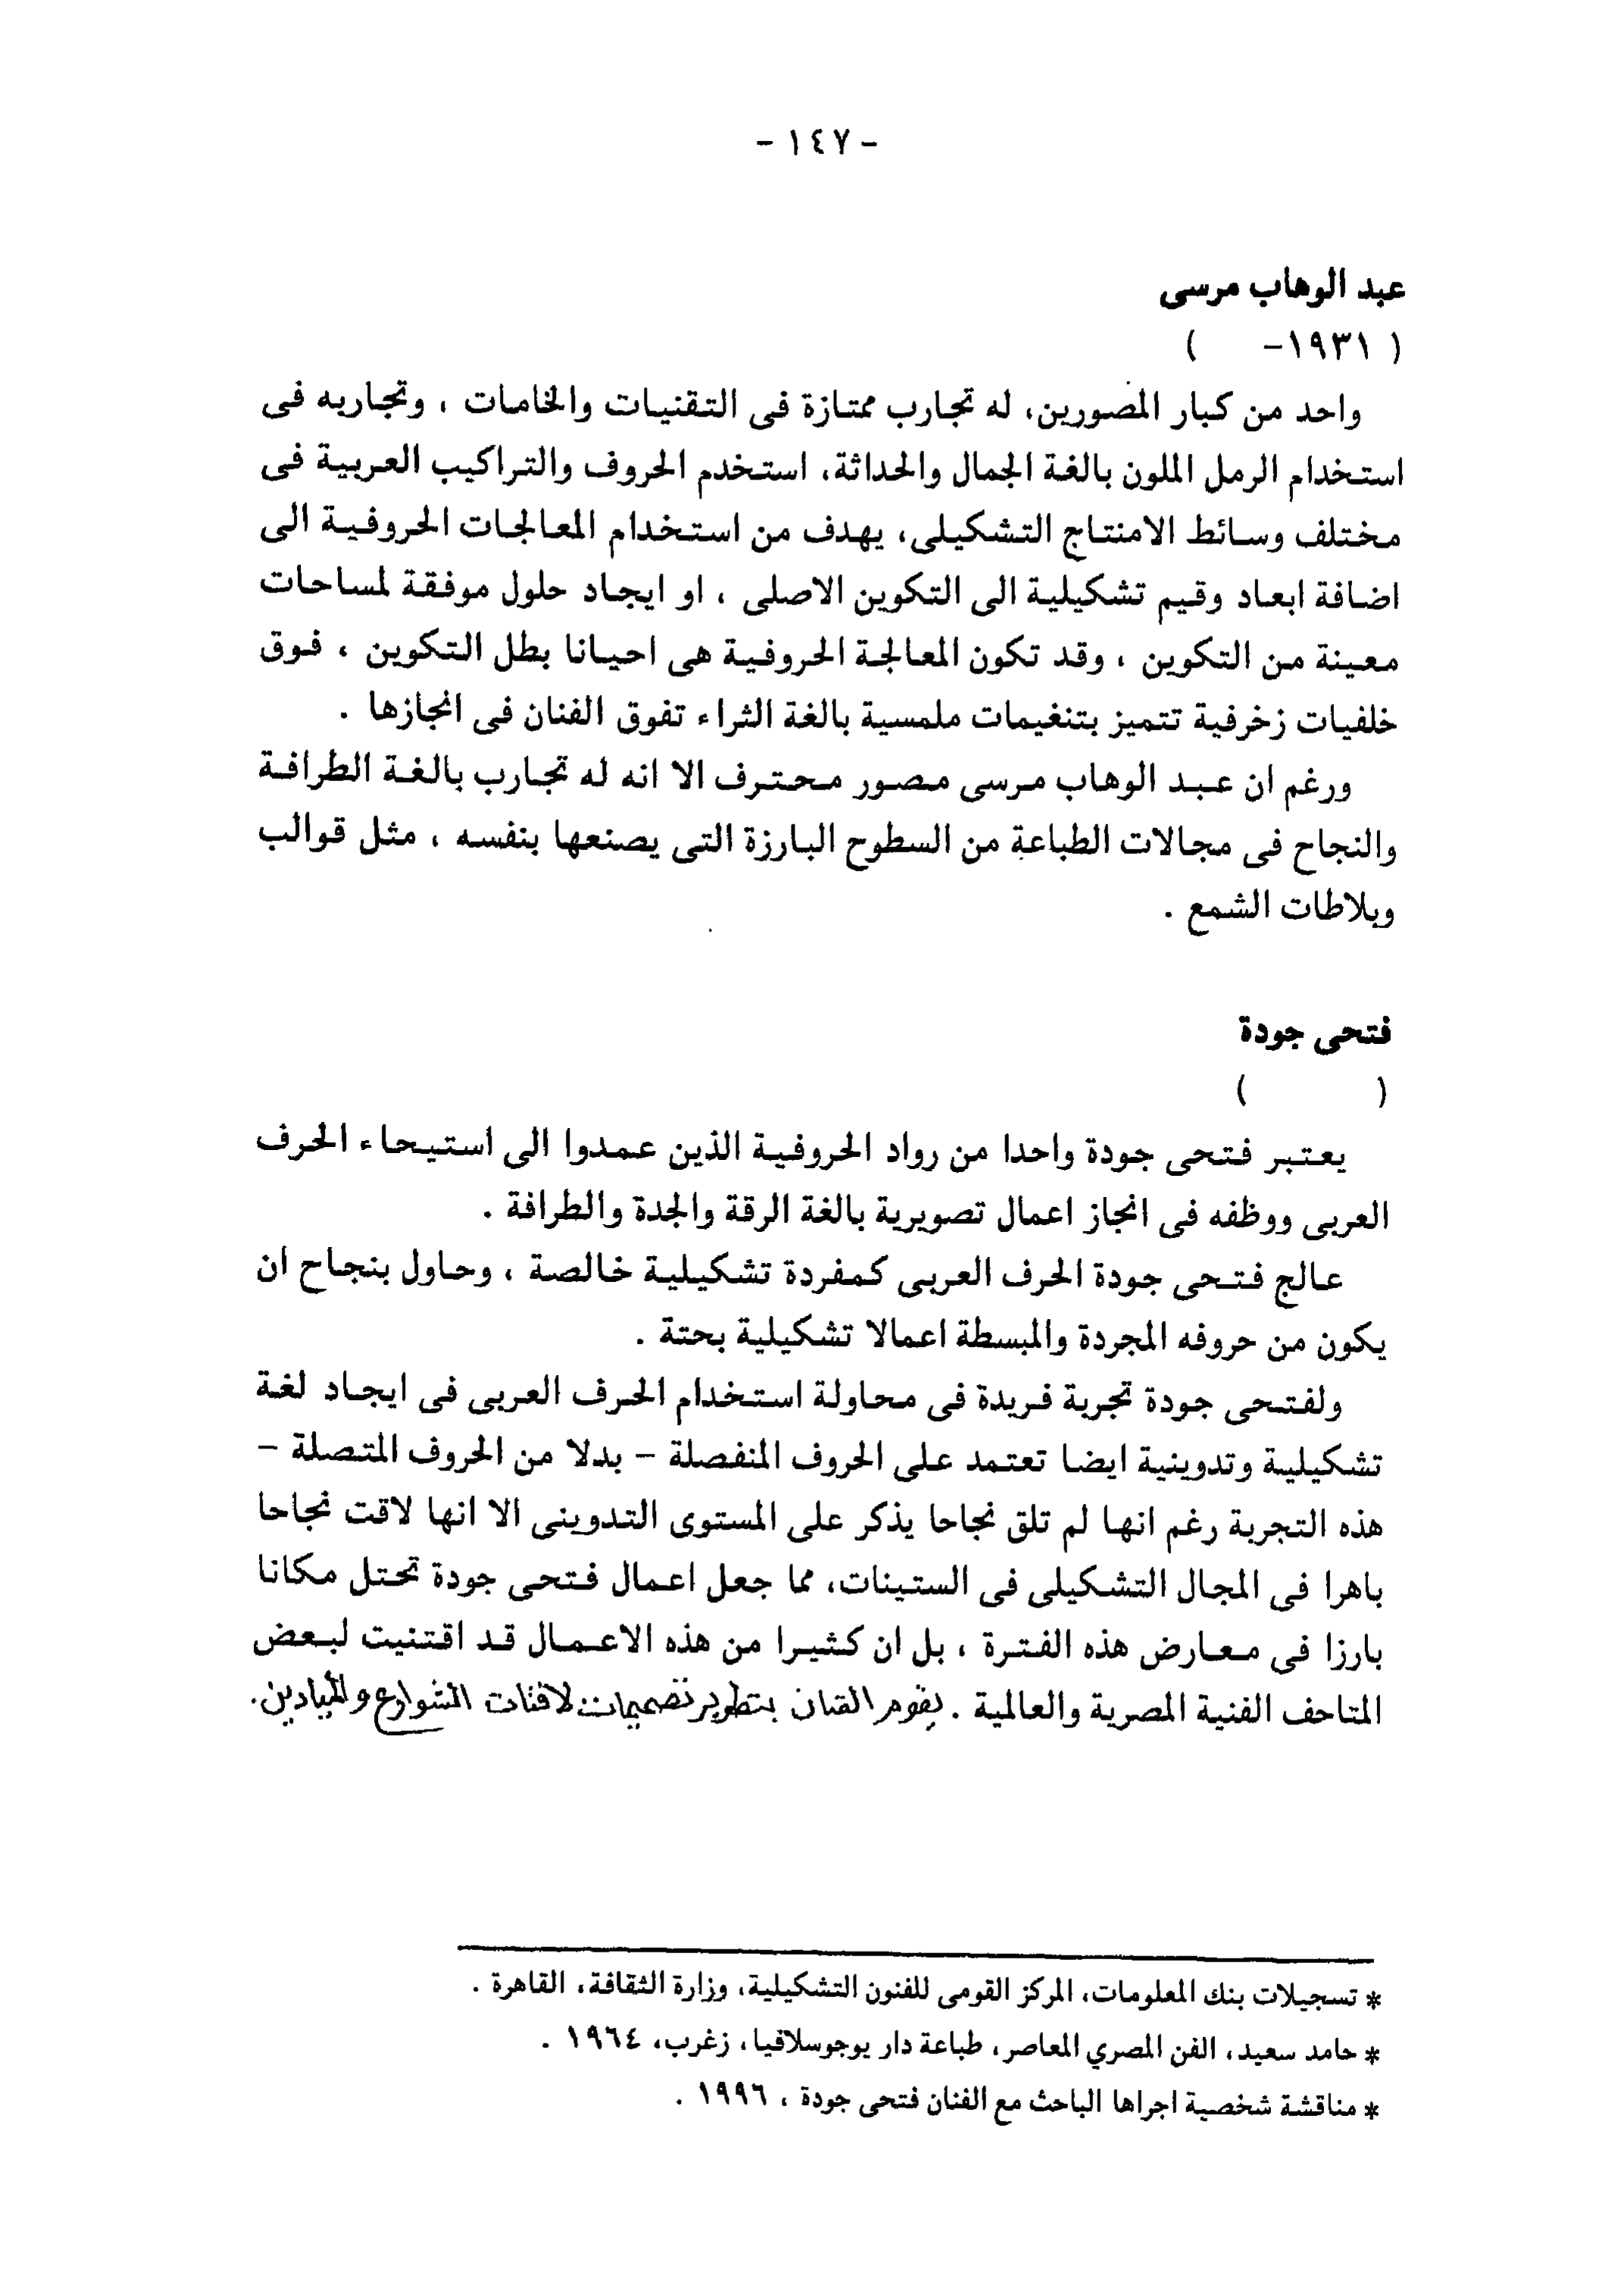 - ١٤٧ -
عبد الوهاب مرسى
( ١٩٣١- )
واحد من كبار المصورين، له تجارب ممتازة فى التقنيات والخامات ، وتجاربه فى
استخدام الرمل الملون بالغة الجمال والحداثة، استخدم الحروف والتراكيب العربية فى
مختلف وسائط الامنتاج التشكيلى، يهدف من استخدام المعالجات الحروفية الى
اضافة ابعاد وقيم تشكيلية الى التكوين الاصلى ، او ايجاد حلول موفقة لمساحات
معينة من التكوين ، وقد تكون المعالجة الحروفية هى احيانا بطل التكوين ، فوق
خلفيات زخرفية تتميز بتنغيمات ملمسية بالغة الثراء تفوق الفنان فى انجازها .
ورغم ان عبد الوهاب مرسى مصور محترف الا انه له تجارب بالغة الطرافة
والنجاح فى مجالات الطباعة من السطوح البارزة التى يصنعها بنفسه ، مثل قوالب
وبلاطات الشمع .
فتحى جودة
( )
يعتبر فتحى جودة واحدا من رواد الحروفية الذين عمدوا الى استيحاء الحرف
العربى ووظفه فى انجاز اعمال تصويرية بالغة الرقة والجدة والطرافة .
عالج فتحى جودة الحرف العربى كمفردة تشكيلية خالصة ، وحاول بنجاح ان
يكون من حروفه المجردة والمبسطة اعمالا تشكيلية بحتة .
ولفتحى جودة تجربة فريدة فى محاولة استخدام الحرف العربى فى ايجاد لغة
تشكيلية وتدوينية ايضا تعتمد على الحروف المنفصلة - بدلا من الحروف المتصلة -
هذه التجربة رغم انها لم تلق نجاحا يذكر على المستوى التدوينى الا انها لاقت نجاحا
باهرا فى المجال التشكيلى فى الستينات، مما جعل اعمال فتحى جودة تحتل مكانا
بارزا فى معارض هذه الفترة ، بل ان كثيرا من هذه الاعمال قد اقتنيت لبعض
المتاحف الفنية المصرية والعالمية . يقوم الفنان بتطوير تصميمات لافتات الشوارع والميادين.
* تسجيلات بنك المعلومات، المركز القومى للفنون التشكيلية، وزارة الثقافة، القاهرة .
* حامد سعيد، الفن المصري المعاصر، طباعة دار يوجوسلافيا، زغرب، ١٩٦٤ .
* مناقشة شخصية اجراها الباحث مع الفنان فتحى جودة ، ١٩٩٦ .